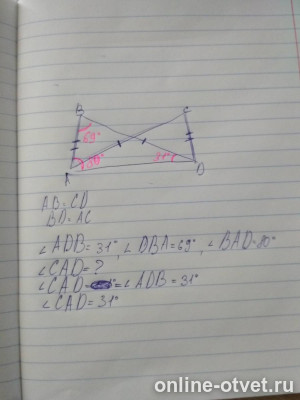 B
C
69°
80°
31°
A
D
AB=CD
BD=AC
∠ADB=31°, ∠DBA=69°, ∠BAD=80°
∠CAD=?
∠CAD = ∠ADB=31°
∠CAD=31°
online-otvet.ru